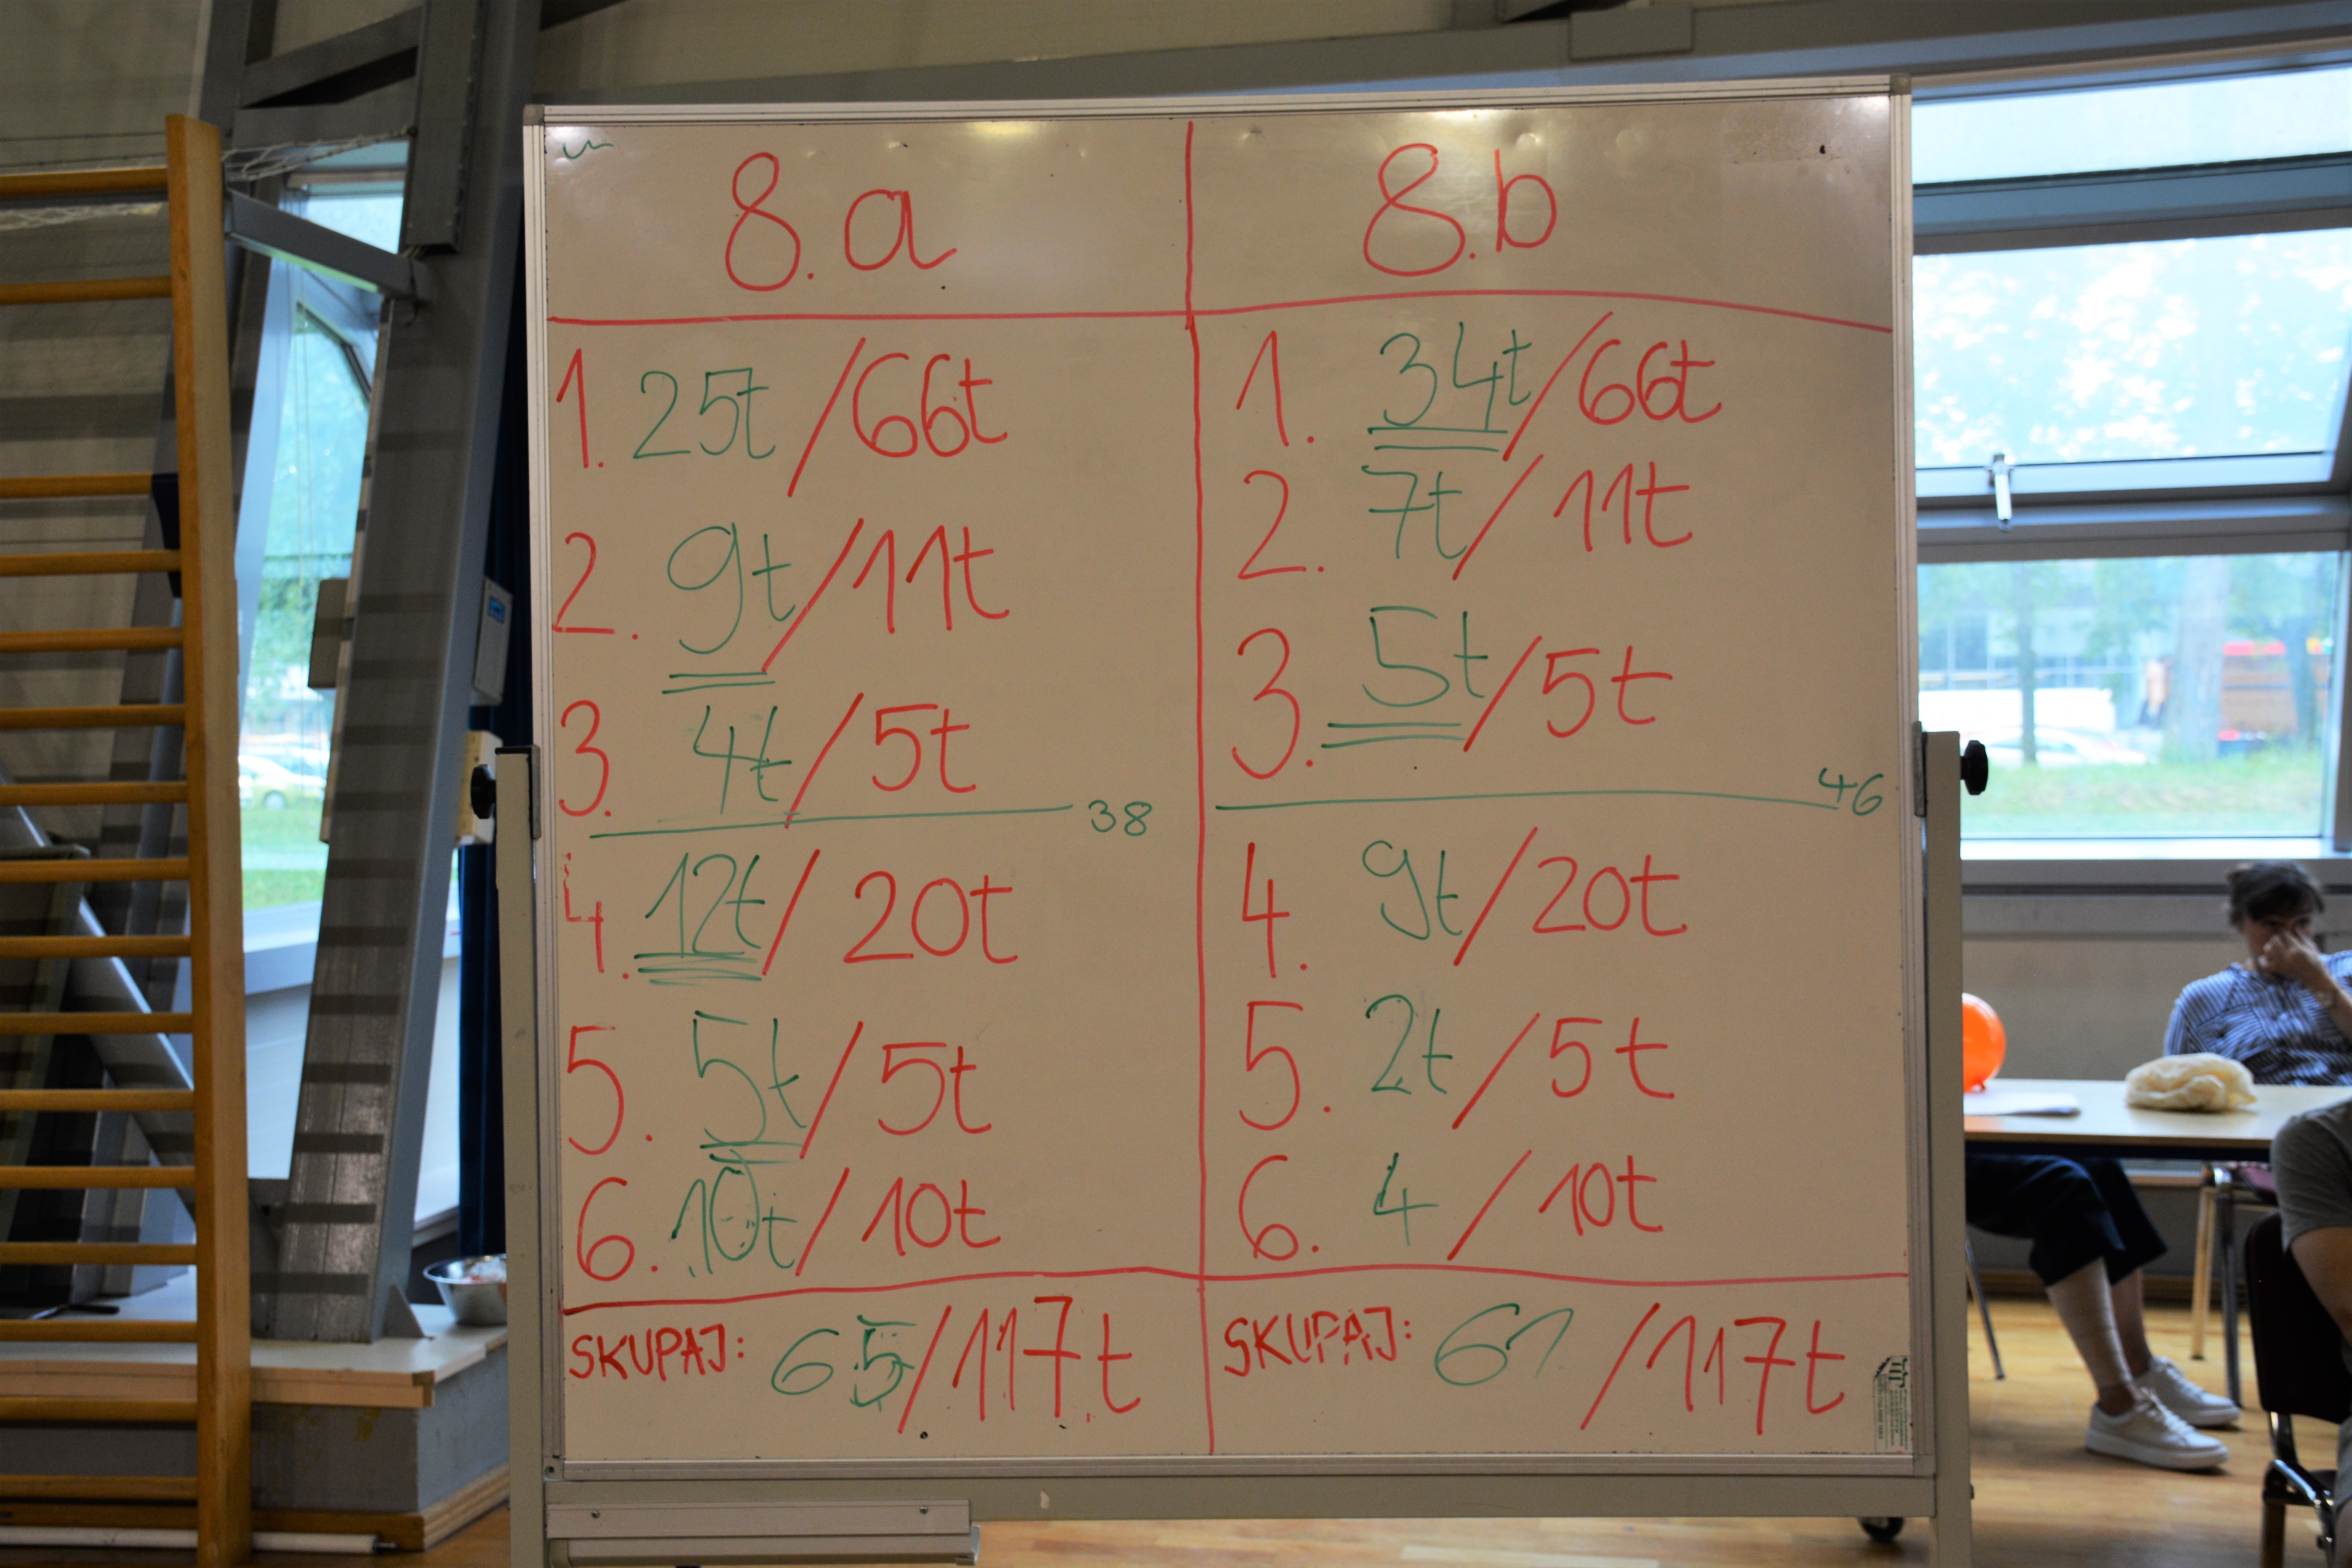 8.a
1. 25t/66t
2. 9t/11t
3. 4t/5t
38
4. 12t/20t
5. 5t/5t
6. 10t/10t
SKUPAJ: 65/117t
8.b
1. 34t/66t
2. 7t/11t
3. 5t/5t
46
4. 9t/20t
5. 2t/5t
6. 4/10t
SKUPAJ: 61/117t